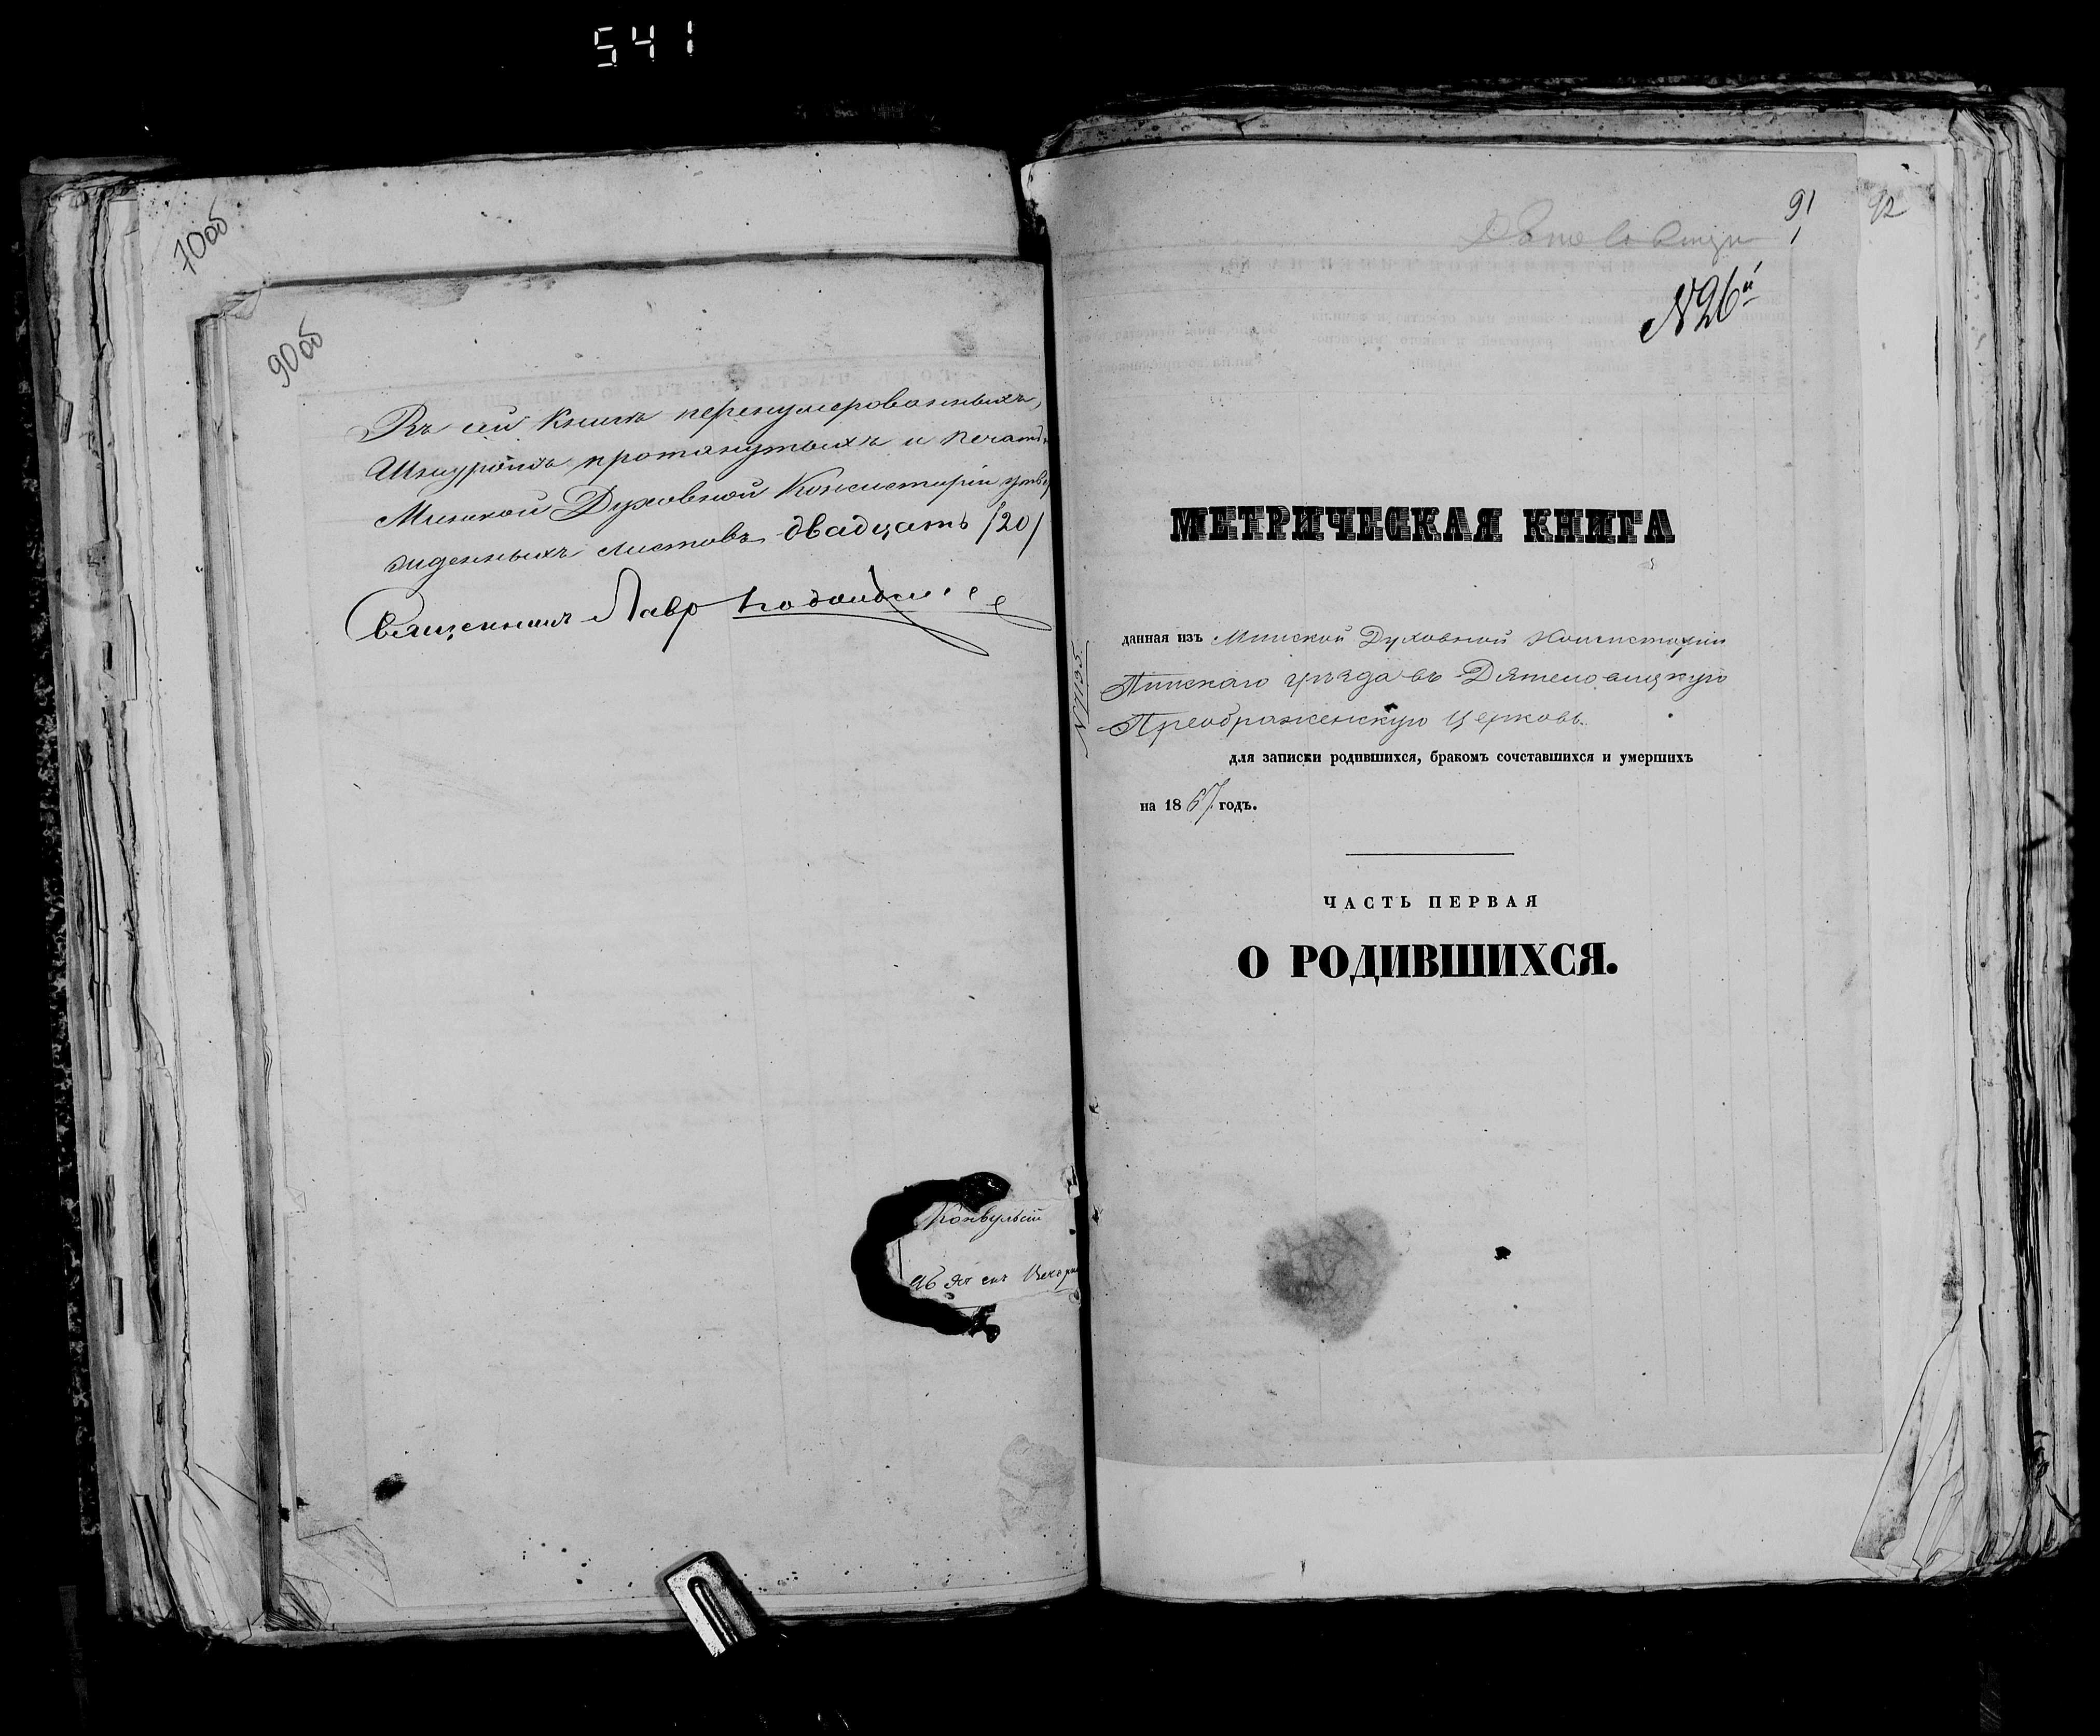 541
70об
90об
Въ сей Книгѣ перенумерованныхъ,
Шнуромъ протянутыхъ и печатью
Минской Духовной Консисторіи утвер
жденныхъ листовъ двадцать /20/
Священникъ Лавръ
Конвульсій
91
92
N26й
МЕТРИЧЕСКАЯ КНИГА
N7135
данная изъ Минской Духовной Консисторіи
Пинскаго уѣзда въ Дятеловицкую
Преображенскую Церковь
для записки родившихся, бракомъ сочетавшихся и умершихъ
на 1867 годъ.
ЧАСТЬ ПЕРВАЯ
О РОДИВШИХСЯ.